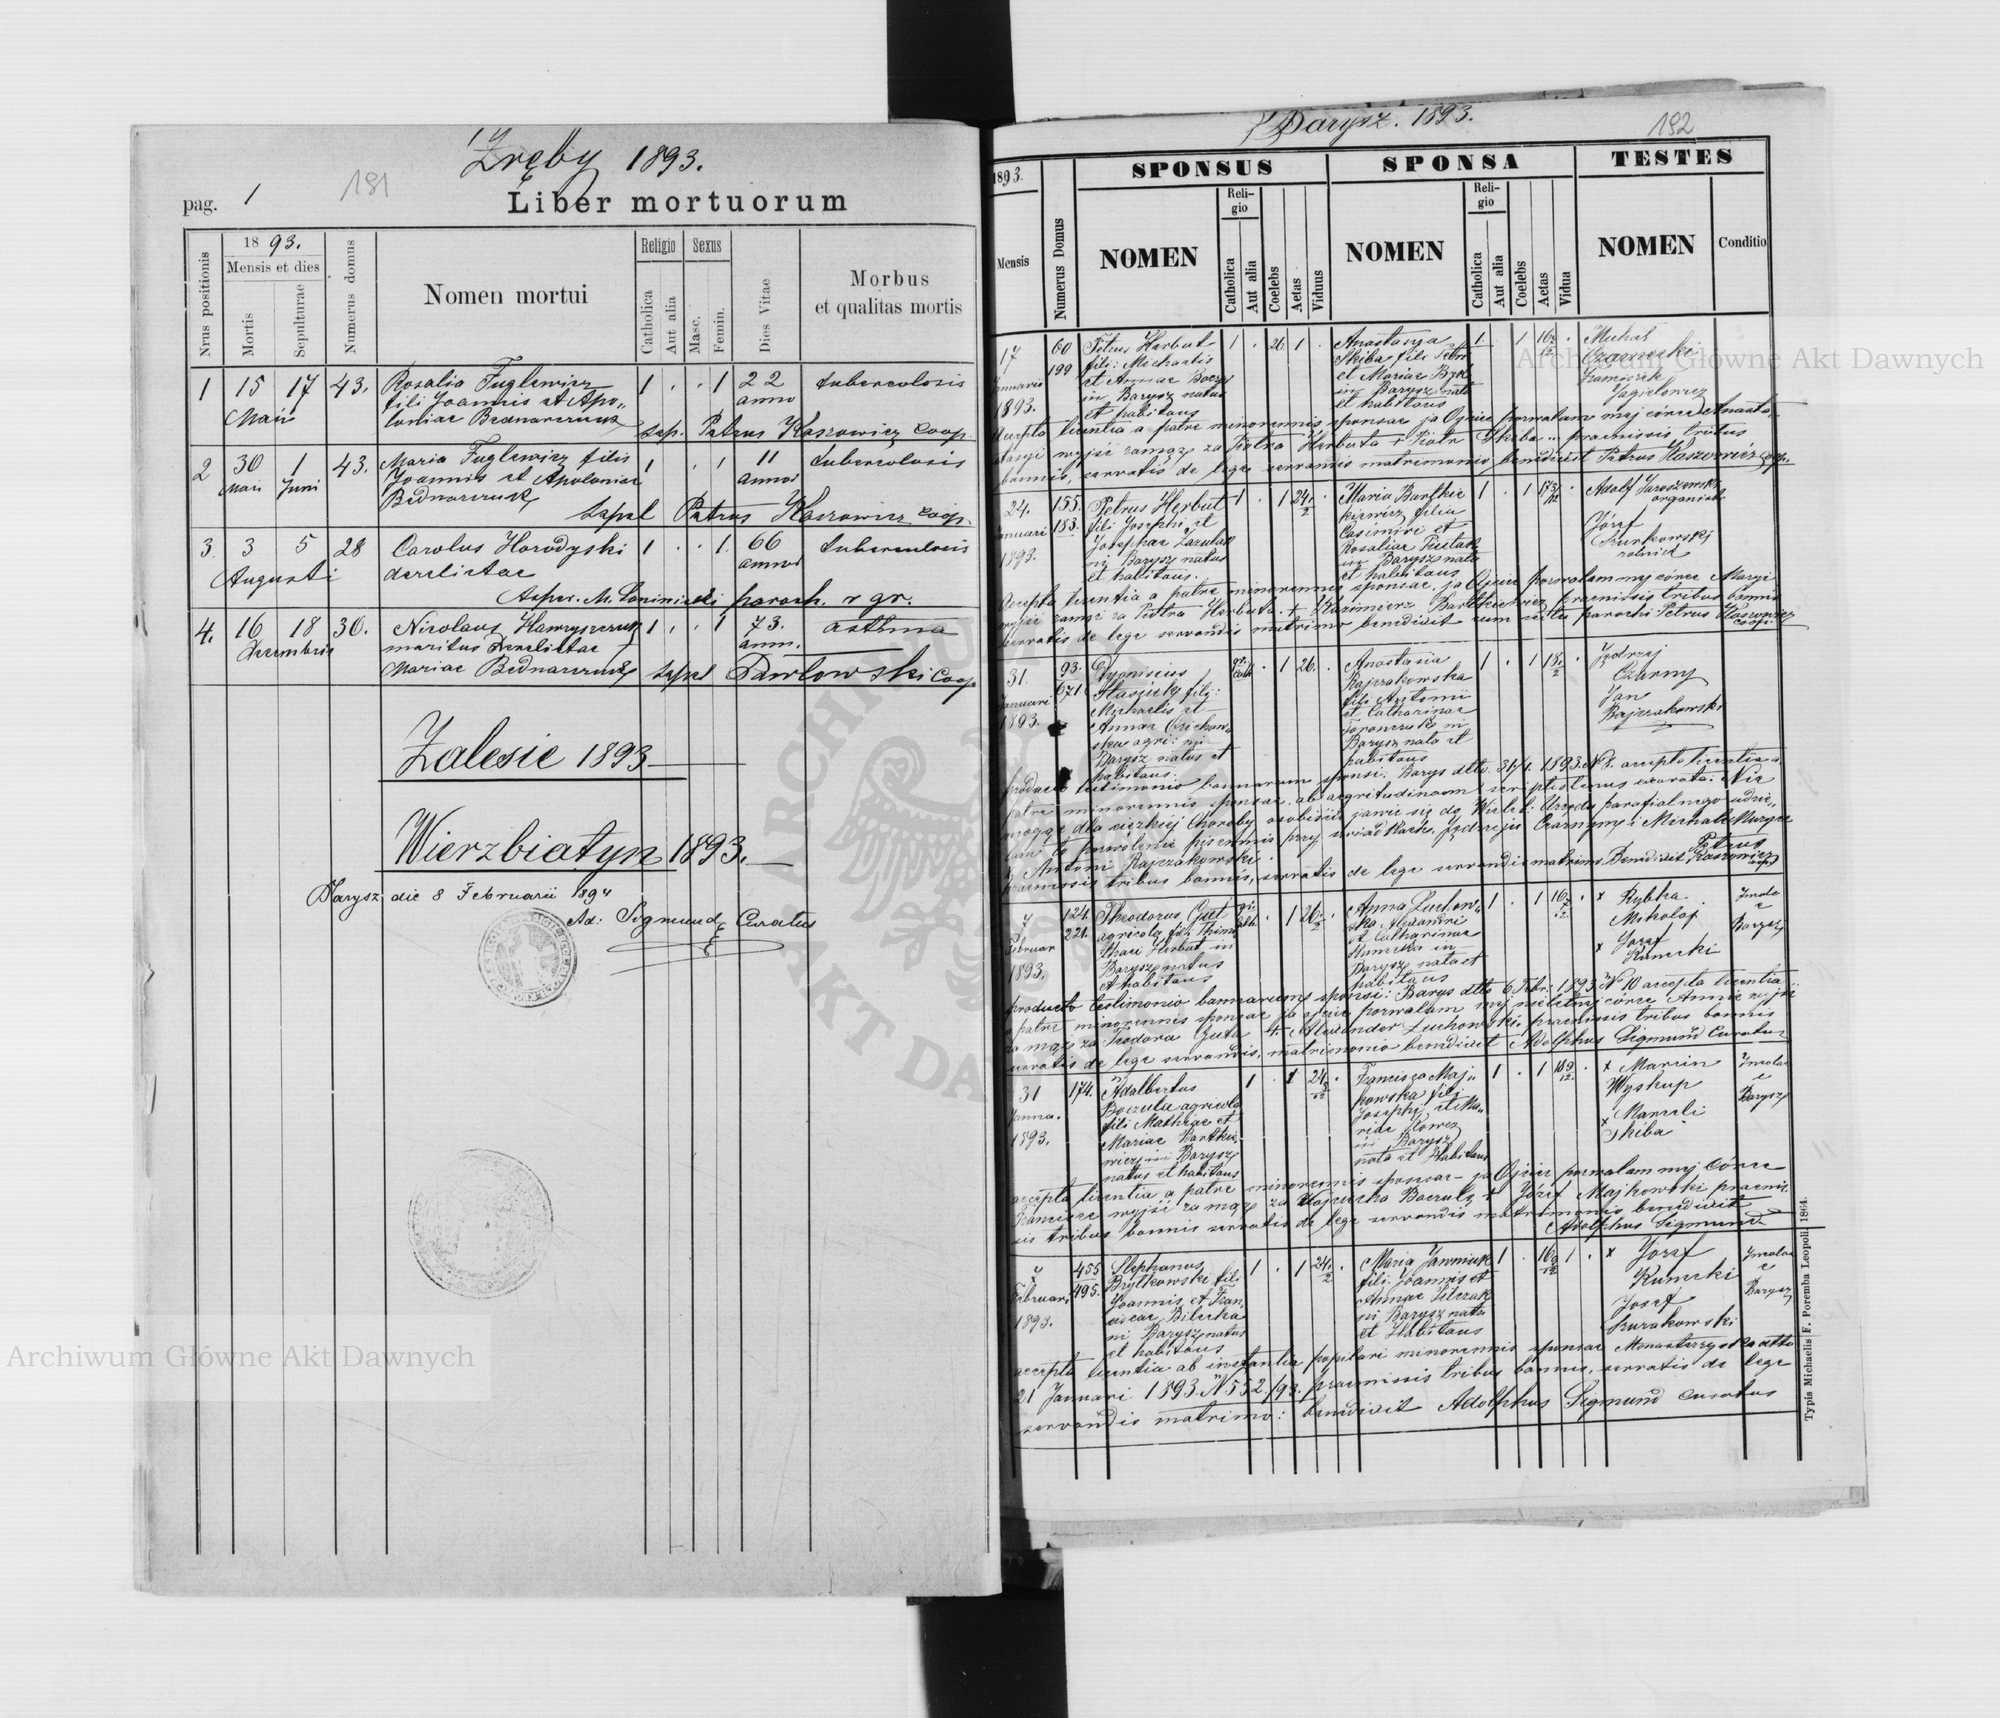 Zręby 1893.
181
pag. 1
Liber mortuorum
Nrus positionis
1893.
Mensis et dies
Mortis
Sepulturae
Numerus domus
Nomen mortui
Religio
Catholica
Aut alia
Sexus
Masc.
Femin.
Dies Vitae
Morbus
et qualitas mortis
1 15 17 43. Rosalia Fuglewicz 1 . . 1 22 tuberculosis
Maii fili Joannis et Apo„ anno
loniae Bednarczuk sep. Petrus Kaszowicz coop.
2 30 1 43. Maria Fuglewicz filis 1 . . 1 11 tuberculosis
Maii Juni Joannis et Apoloniae annor
Bednarczuk sepel Petrus Kaszowicz coop.
3. 3 5 28 Carolus Horodyski 1 . . 1. 66 tuberculosis
Augusti derelictae annor
paroch. r gr.
4. 16 18 30. Nicolaus Hawryszczuk 1 . . 1 73. asthma
Decembris maritus Derelittae ann.
Mariae Bednarczuk sepel Pawłowski Coop.
Zalesie 1893
Wierzbiatyn 1893.
Barysz die 8 Februarii 1894
Ad: Sigmund Curatus
Barysz. 1893.
192
1893.
Mensis
Numerus Domus
SPONSUS
NOMEN
Religio
Catholica
Aut alia
Coelebs
Aetas
Viduus
SPONSA
NOMEN
Religio
Catholica
Aut alia
Coelebs
Aetas
Vidua
TESTES
NOMEN
Conditio
17
Januarii
1893.
60
199
Petrus Herbut
fili: Michaelis
et Annae Bocz
in Barysz natus
et habitans
1 . 26 1 .
Anastasya
Skiba fili Petri
et Mariae Byk
in Barysz nata
et habitans
1 . 1
Michał
Czarnecki
Franciszek
Jagielowicz
Accepta licentia a patre minorennis sponsae ja Ojciec pozwalam mej córce Anasta
stasyi wyjść zamąż za Piotra Herbuta + Piotr Skiba praemissis tribus
bannis, servatis de lege servandis matrimonio benedixit Petrus Kaszowicz coop.
24.
Januari
1893.
155.
183.
Petrus Herbut
fili Josephi et
Josephae Zarudak
in Barysz natus
et habitans.
1 . 1 24 .
Maria Bartkie
kiewicz filia
Casimiri et
Rosaliae
in Barysz nata
et habitans
1 . 1
Adolf Jaroszewski
organista
Józef
Kurkowski
rolnik
Accepta licentia a patre minorennis sponsae, ja Ojciec pozwalam mej córce Maryi
wyjść zamąż za Piotra Herbuta. + Kazimierz Bartkiewicz praemissis tribus bannis
servatis de lege servandis matrimo benedixit cum scitu parochi Petrus Kaszowicz
coop.
31.
Januari
1893.
93.
671
Dyonisius
fili:
Michaelis et
Annae
agri: in
Barysz natus et
habitans.
gr.
cath . 1 26. .
Anastasia
Rajzakowska
fili Antonii
et Catharinae
in
Barysz nata et
habitans
1 . 1 18 .
Jędrzej
Czarny
Jan
Rajzakowski
producto testimonio bannorum sponsi: Barys dtto 31/1. 1893. N 8. accepta licentia a
patre minorennis sponsae ob aegritudinem scriptotenus exarata: Nie
mogąc dla ciężkiej choroby osobiście jawić się do Wieleb. Urzędu parafialnego udzie„
lam to pozwolenie pisemnie przy świadkach, Jędrzeju Czarnym i Michale
Antoni Rajzakowski.
praemissis tribus bannis, servatis de lege servandis matrim. Benedixit Petrus
Kaszowicz
coop
7
Februar
1893.
124.
221.
Theodorus Gut
agricola fili
Herbut in
Barysz natus
et habitans
gr.
cath. . 1 26 .
Anna Zuchow„
ska Alexandri
et Catharinae
Kunecka in
Barysz nata et
habitans
1 . 1
x Rybka
Mikołaj
x Józef
Kunecki
Incolae
e
Barysz
producto testimonio bannorum sponsi: Barys dtto 6 Febr: 1893 N 10 accepta licentia
a patre minorennis sponsae ja ojciec pozwalam mej nieletniej córce Annie wyjść
za mąż za Teodora Guta + Alexander Zuchowski. praemissis tribus bannis
servatis de lege servandis, matrimonio benedixit Adolphus Sigmund Curatus
31
Janua.
1893.
174.
Adalbertus
Boczula agricola
fili Mathiae et
Mariae Bartkie„
wicz in Barysz
natus et habitans
1 . 1 24 .
Francisca Maj„
kowska fili
Josephi et Ma„
riae
in Barysz
nata et Habitans
1 . 1 18 9/12 .
x Marcin
Wyskup
x Marceli
Skiba
Incolae
e
Barysz
accepta licentia a patre minorennis sponsae – ja Ojciec pozwalam mej Córce
Francisce wyjść za mąż za Wojciecha Boczulę + Józef Majkowski praemis
sis tribus bannis servatis de lege servandis matrimonio benedixit
Adolphus Sigmund
7
Februari
1893.
455
495.
Stephanus
Brytkowski fili
Joannis et Fran„
ciscae Bilecka
in Barysz natus
et habitans
1 . 1 24 .
Maria Jawniuk
fili: Joannis et
Annae
in Barysz nata
et Habitans
1 . 16 9/12 1 .
x Józef
Kunecki
Josef
Kurakowski
Incolae
e
Barysz
accepta licentia ab instantia pupilari minorennis sponsae Monasterzyska dtto
21 Januari 1893. N 552/93. praemissis tribus bannis, servatis de lege
servandis matrimo: benedixit Adolphus Sigmund Curatus
Typis Michaelis F. Poremba Leopoli 1864.
ARCHIWUM AKT DA
Archiwum Główne Akt Dawnych
Archiwum Główne Akt Dawnych